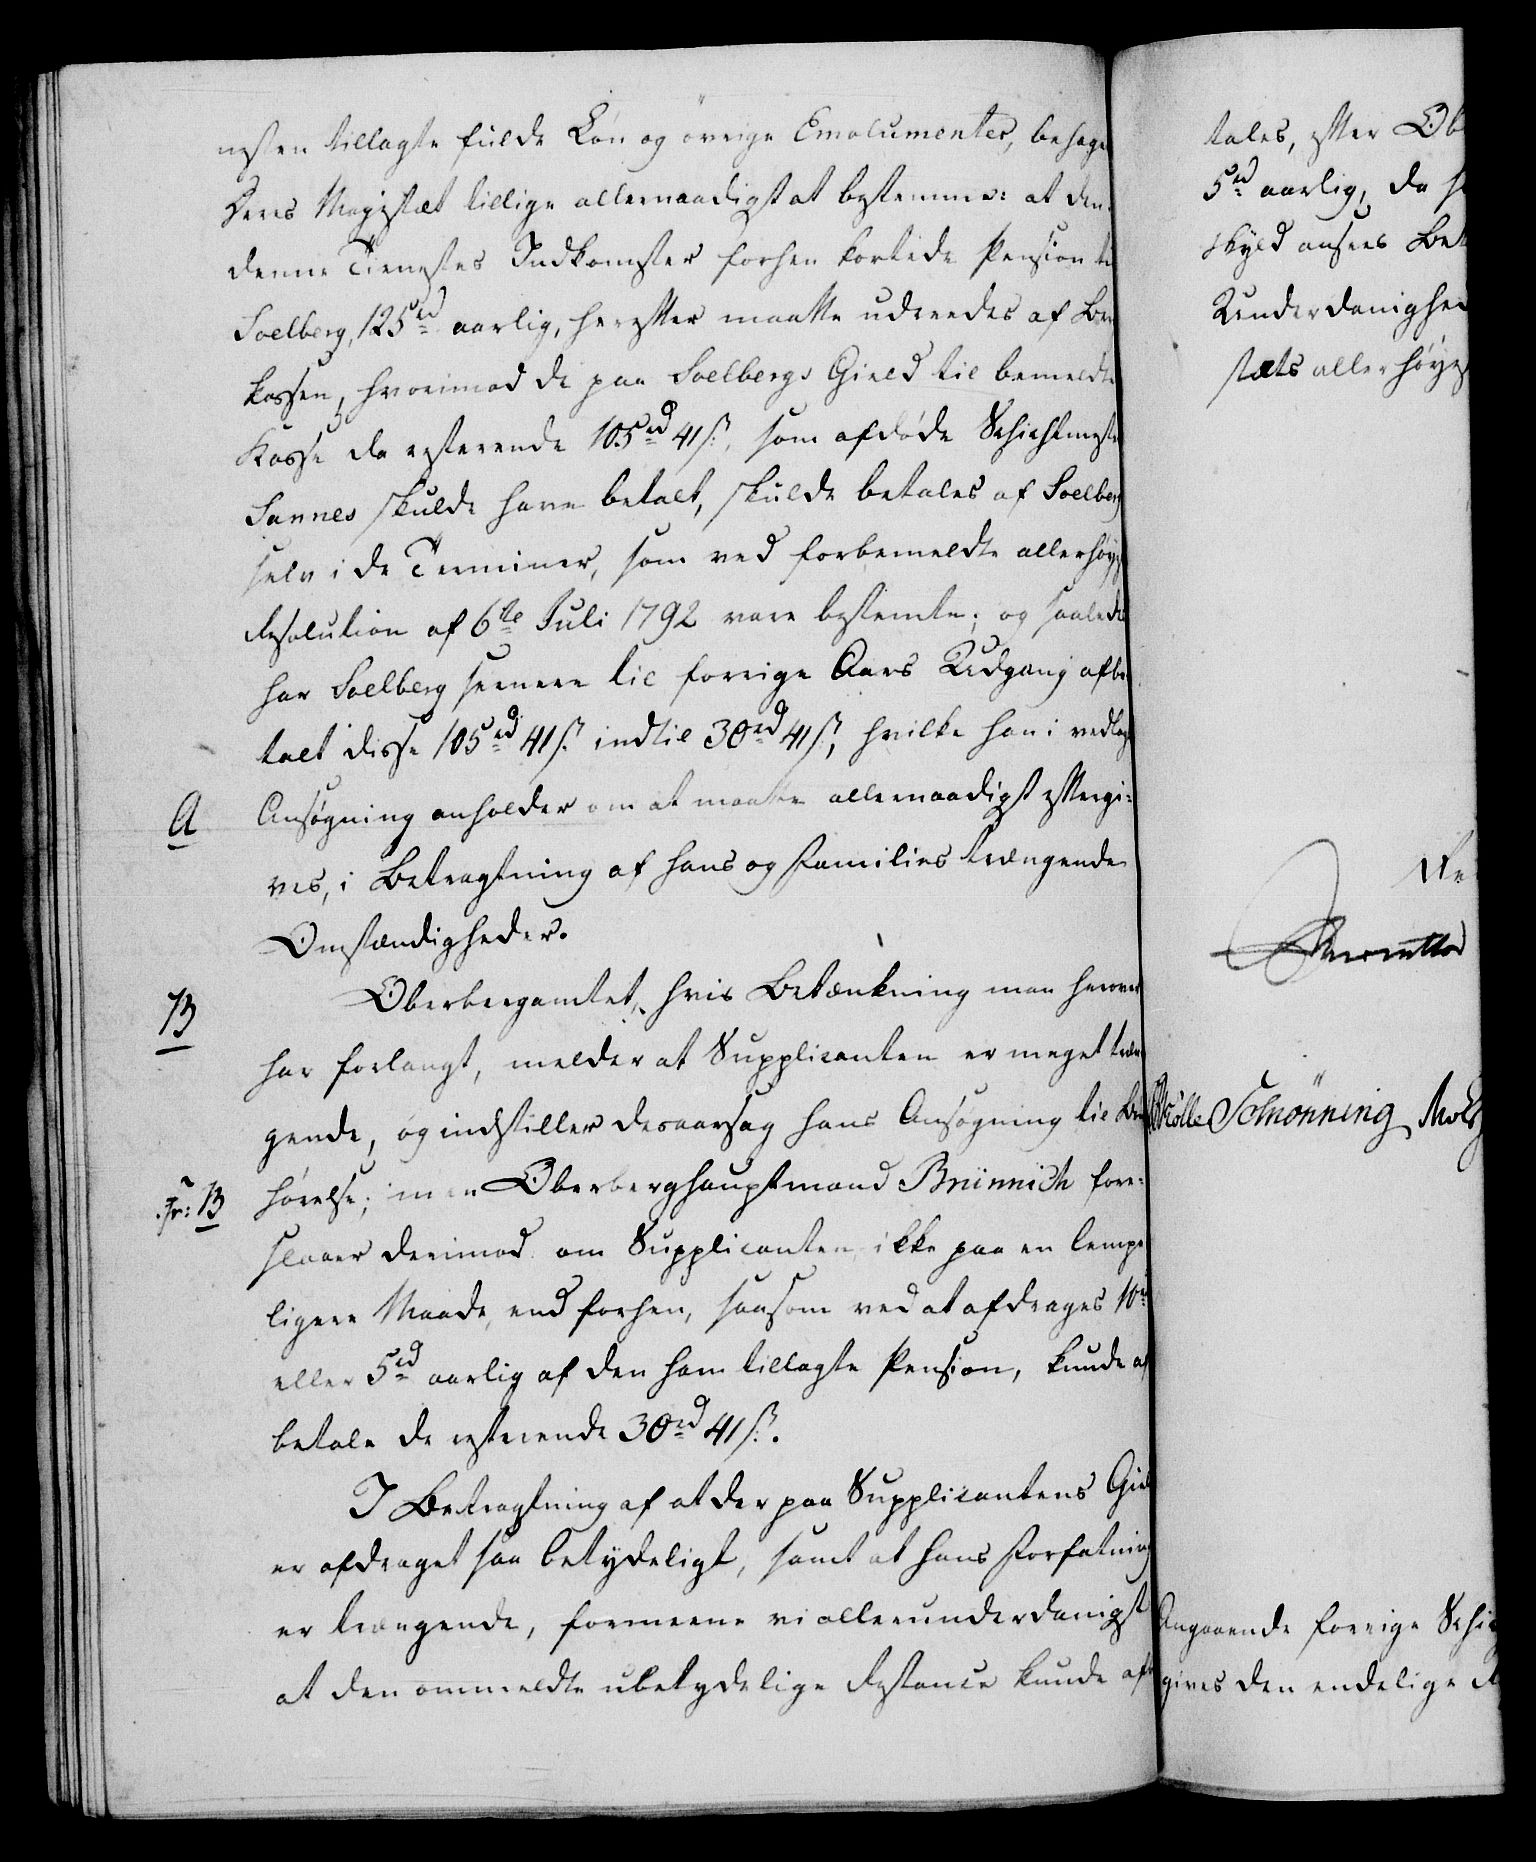 nesten tillagte fulde Løn og øvrige Emolumenter, behage
Deres Majestæt tillige allernaadigst at bestemme: at den
denne Tienestes Indkomster forhen kortede Pension til
Soelberg, 125 rd aarlig, herefter maatte udredes af Berg
kassen, hvorimod de paa Soelbergs Gield til bemeldte
Kasse da resterende 105 rd 41 ß, som afdøde Schichtmester
Sannes skulde have betalt, skulde betales af Soelberg
selv i de Terminer, som ved forbemeldte allerhøyst
Resolution af 6te Juli 1792 vare bestemte; og saaledes
har Soelberg seenere til forrige Aars Udgang afbe
talt disse 105 rd 41 ß. indtil 30 rd 41 ß, hvilke han i vedlagt
A Ansøgning anholder om at maatte allernaadigst eftergi=
ves, i Betragtning af hans og Families trængende
Omstændigheder.
B Oberbergamtet, hvis Betænkning man herover
har forlangt, melder at Supplicanten er meget træn
gende, og indstiller desaarsag hans Ansøgning til Bøn
Fr: B hørelse; men Oberberghauptmand Brünnich fore=
slaaer derimod om Supplicanten ikke paa en lempe
ligere Maade, end forhen, saasom ved at afdrages 10 rd
eller 5 rd aarlig af den ham tillagte Pension, kunde af
betale de resterende 30 rd 41 ß.
I Betragtning af at der paa Supplicantens Gield
er afdraget saa betydeligt, samt at hans Forfatning
er trængende, formeene vi allerunderdanigst
at den ommeldte ubetydelige Restance kunde af
tales, efter Ob
5 rd aarlig, da
skyld ansees Bet
Underdanighed
stæts allerhøyes
Schønning Molt
Angaaende forrige Schic
gives den endelige